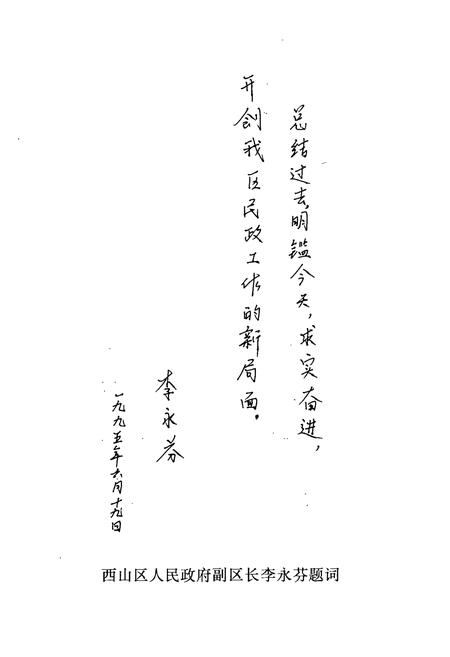 总结过去,明鑑今天,求实奋进,
开创我区民政工作的新局面。
李永芬
一九九五年六月十九日
西山区人民政府副区长李永芬题词